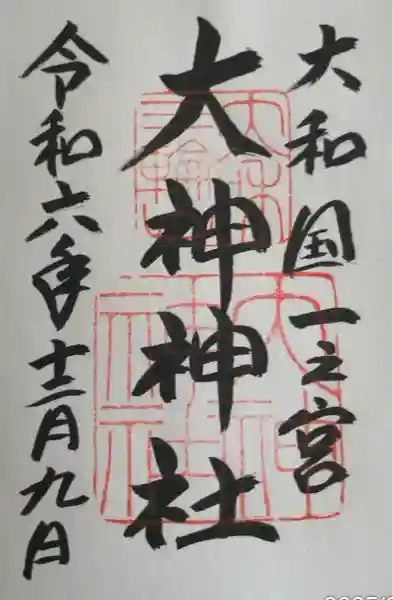 大和国一之宮
大神神社
令和六年十二月九日
大神神社